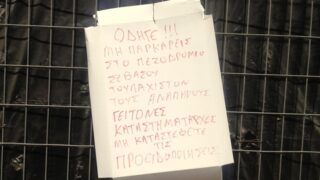 ΟΔΗΓΕ!!!
ΜΗ ΠΑΡΚΑΡΕΙΣ
ΣΤΟ ΠΕΖΟΔΡΟΜΙΟ
ΣΕΒΑΣΟΥ
ΤΟΥΛΑΧΙΣΤΟΝ
ΤΟΥΣ ΑΝΑΠΗΡΟΥΣ
ΓΕΙΤΟΝΕΣ
ΚΑΤΑΣΤΗΜΑΤΑΡΧΕΣ
ΜΗ ΚΑΤΑΣΤΡΕΦΕΤΕ
ΤΙΣ
ΠΡΟΕΙΔΟΠΟΙΗΣΕΙΣ